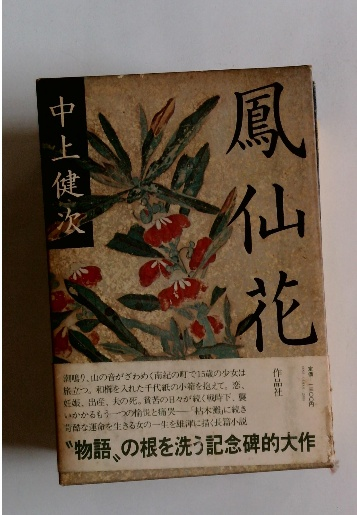 鳳仙花
中上健次
潮鳴り、山の音がざわめく南紀の町で15歳の少女は
旅立つ。和櫛を入れた千代紙の小箱を抱えて。恋、
妊娠、出産、夫の死。貧苦の日々が続く戦時下、襲
いかかるもう一つの愉悦と痛哭―「枯木灘」に続き
苛酷な運命を生きる女の一生を雄渾に描く長篇小説
作品社
“物語”の根を洗う記念碑的大作